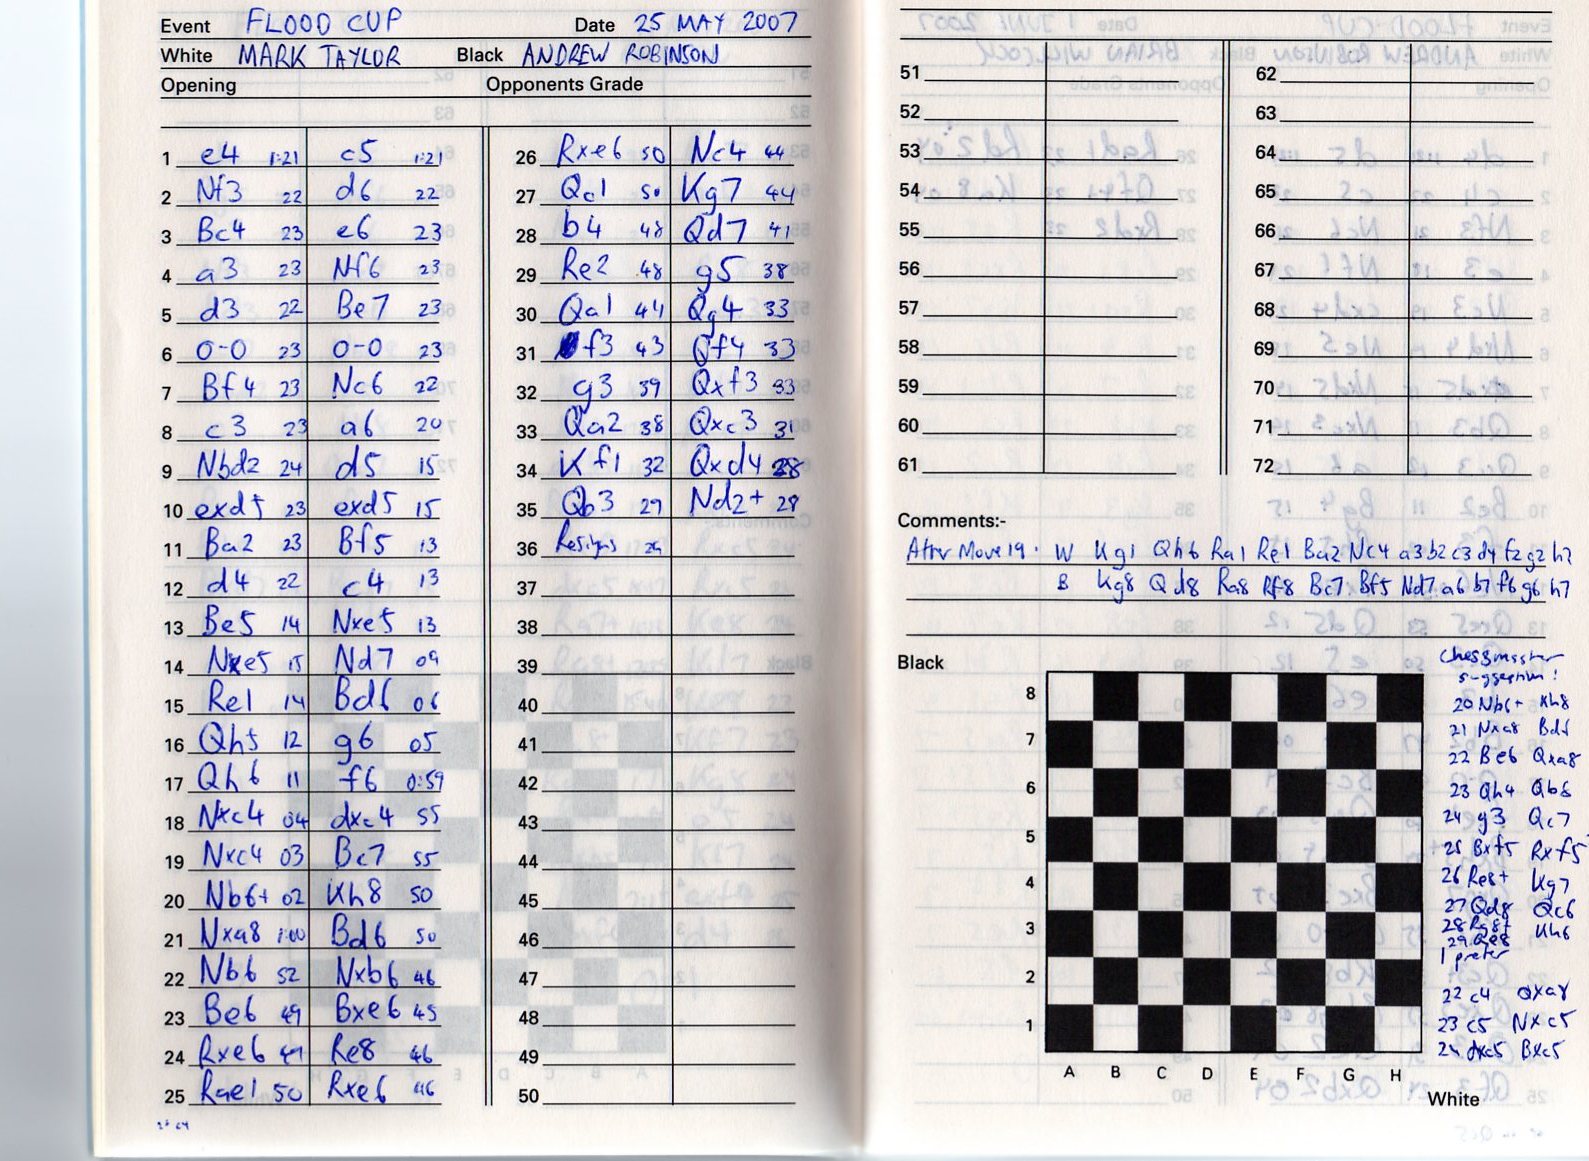 Event FLOOD CUP Date 25 MAY 2007
White MARK TAYLOR Black ANDREW ROBINSON
Opening Opponents Grade
1 e4 1:21 c5 1:21
2 Nf3 22 d6 22
3 Bc4 23 e6 23
4 a3 23 Nf6 23
5 d3 22 Be7 23
6 0-0 23 0-0 23
7 Bf4 23 Nc6 22
8 c3 23 a6 20
9 Nbd2 24 d5 15
10 exd5 23 exd5 15
11 Ba2 23 Bf5 13
12 d4 22 c4 13
13 Be5 14 Nxe5 13
14 Nxe5 15 Nd7 09
15 Re1 14 Bd6 06
16 Qh5 12 g6 05
17 Qh6 11 f6 0:59
18 Nxc4 04 dxc4 55
19 Nxc4 03 Bc7 55
20 Nb6+ 02 Kh8 50
21 Nxa8 1:00 Bd6 50
22 Nb6 52 Nxb6 46
23 Be6 49 Bxe6 45
24 Rxe6 49 Re8 46
25 Rae1 50 Rxe6 46
26 Rxe6 50 Nc4 44
27 Qc1 50 Kg7 44
28 b4 48 Qd7 41
29 Re2 48 g5 38
30 Qa1 44 Qg4 33
31 f3 43 Qf4 33
32 g3 39 Qxf3 33
33 Qa2 38 Qxc3 31
34 Kf1 32 Qxd4 28
35 Qb3 29 Nd2+ 28
36 Resigns 29
37
38
39
40
41
42
43
44
45
46
47
48
49
50
51 62
52 63
53 64
54 65
55 66
56 67
57 68
58 69
59 70
60 71
61 72
Comments:-
After Move 19. W Kg1 Qh6 Ra1 Re1 Ba2 Nc4 a3 b2 c3 d4 f2 g2 h2
B Kg8 Qd8 Ra8 Rf8 Bc7 Bf5 Nd7 a6 b7 f6 g6 h7
Black
Chessmaster
suggestion!
20 Nb6+ Kh8
21 Nxa8 Bd6
22 Be6 Qxa8
23 Qh4 Qb8
24 g3 Qc7
25 Bxf5 Rxf5
26 Re8+ Kg7
27 Qd8 Qc6
28 Rg8+ Kh6
29 Qe8
I prefer
22 c4 Qxa8
23 c5 Nxc5
24 dxc5 Bxc5
8
7
6
5
4
3
2
1
A B C D E F G H
White